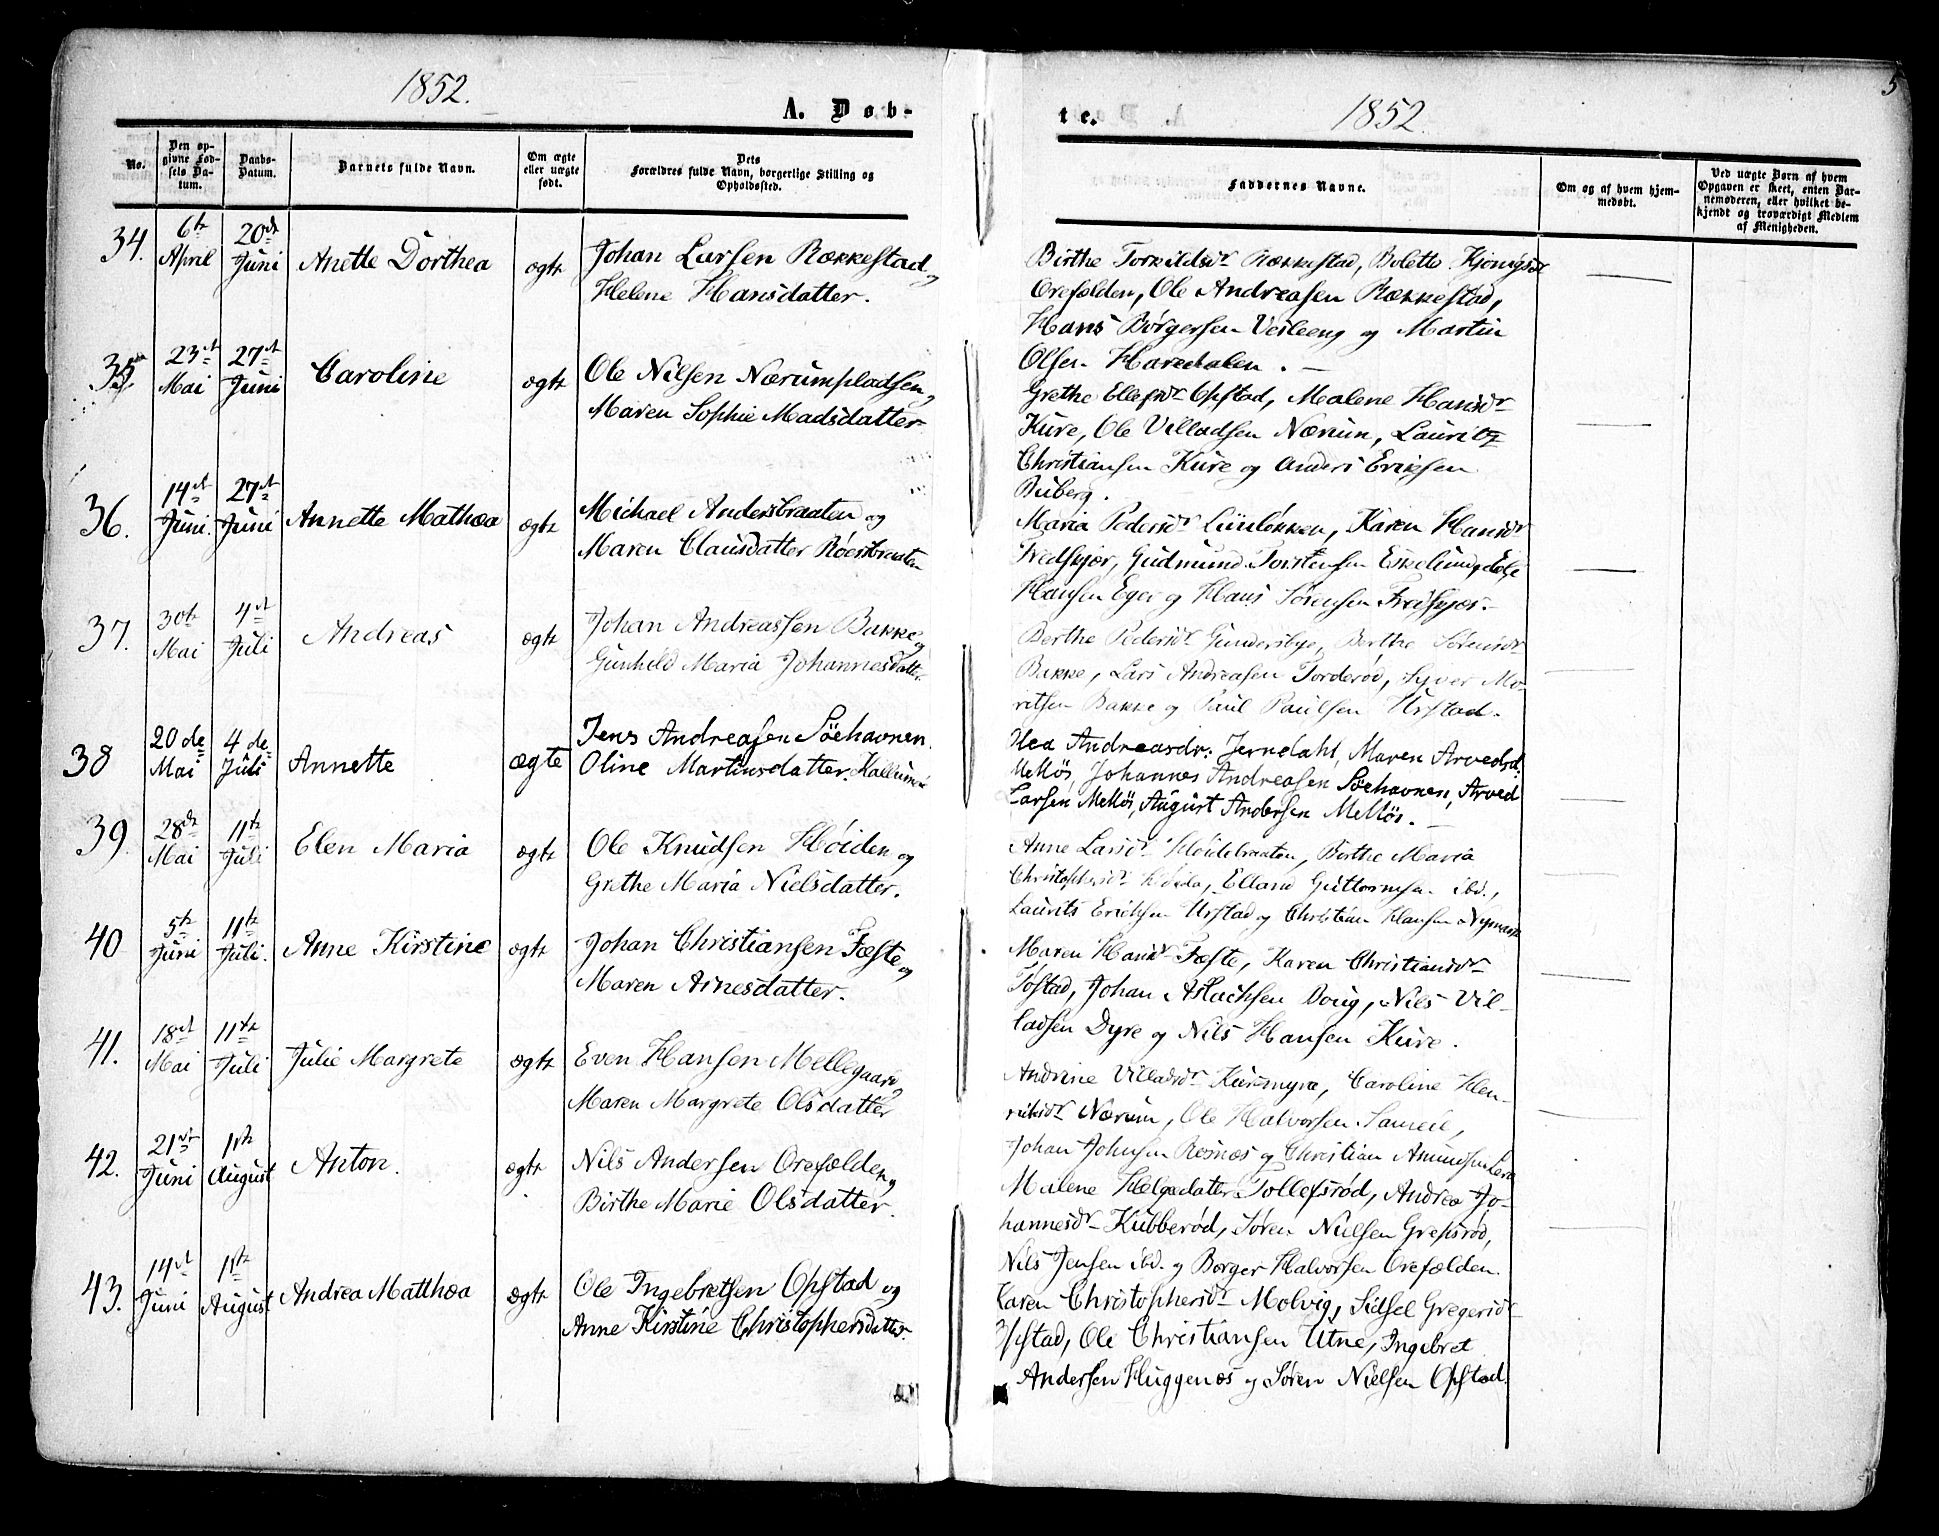 1852.
A. Døb-
No.
Den op-
givne Fød-
sels Da-
tum.
Daabs-
Datum.
Barnets fulde Navn.
Om ægte
eller uægte
født.
Dets
Forældres fulde Navn, borgerlige Stilling og
Opholdssted.
34. 6te April 20de Juni Anette Dorthea ægte Johan Larsen Rækkestad og
Helene Hansdatter.
35. 23de Mai 27de Juni Caroline ægte Ole Nilsen Nærumpladsen og
Maren Sophie Madsdatter
36. 14de Juni 27de Juni Annette Mathea ægte Michael Andersbraaten og
Maren Clausdatter Röersbraaten
37. 30te Mai 4de Juli Andreas ægte Johan Andreassen Bakke og
Gunhild Maria Johannesdatter
38 20de Mai 4de Juli Annette ægte Jens Andreasen Söehavnen.
Oline Martinsdatter.
39. 28de Mai 11te Juli Elen Maria ægte Ole Knudsen Høiden og
Grethe Maria Nielsdatter.
40 5te Juni 11te Juli. Anne Kirstine ægte Johan Christiansen Fæste og
Maren Arnesdatter.
41. 18de Mai 11te Juli Julie Margrete ægte Even Hansen Mellegaard og
Maren Margrete Olsdatter
42. 21de Juni 1ste August Anton. ægte Nils Andersen Orefælden og
Birthe Marie Olsdatter.
43. 14de Juni 1ste August Andrea Matthea ægte Ole Ingebretsen Opstad og
Anne Kirstine Christophersdatter.
5
te.
1852.
Faddernes Navne.
Om og af hvem hjem-
medøbt.
Ved uægte Børn af hvem
Opgaven er skeet, enten Bar-
nemoderen, eller hvilket be-
kjendt og troværdigt Medlem
af Menigheden.
Birthe Torkildsdr Rækkestad, Bolette
Orefælden, Ole Andreasen Rækkestad,
Hans Børgersen Veileeng og Martin
Olsen Haredalen.
Grethe Ellefsdr Opstad, Malene Hansdr
Kure, Ole Villadsen Nærum, Lauritz
Christiansen Kure og Anders Eriksen
Buberg.
Maria Pedersdr Lunløkken, Karen Hansdr
Fredskjær, Gudmund Torstensen Eskelund,
Hansen Eger og Hans Sørensen
Berthe Pedersdr Gundersbye, Berthe Sørensdr
Bakke, Lars Andreasen Torderød, Syver Mo-
ritsen Bakke og Paul Paulsen Urstad.
Olea Andreasdr: Jerndahl, Maren Arvedsd:
Mellös, Johannes Andreasen Söehavnen, Arved
Larsen Mellös, August Andersen Mellös.
Anne Larsdr Høidebraaten, Birthe Maria
Christophersdr Elland Guttormsen ibd.,
Laurits Erichsen Urstad og Christian Hansen
Maren Hansdr Fæste, Karen Christiansdr
Tøstad, Johan Aslachsen Doug, Nils Vil-
ladsen Dyre og Nils Hansen Kure.
Andrine Villadsdr Kuremyra, Caroline Hen-
riksdr Nærum, Ole Halvorsen
Johan Johnsen Resnæs og Christian Amundsen
Malene Helgedatter Tollefsrød, Andrea Jo-
hannesdr Kubberød, Søren Nielsen Grepsrød,
Nils Jensen ibd. og Borger Halvorsen Orefælden.
Karen Christophersdr Molvig, Sidsel Gregersdr
Opstad, Ole Christiansen Utne, Ingebret
Andersen Huggenes og Søren Nielsen Opstad.